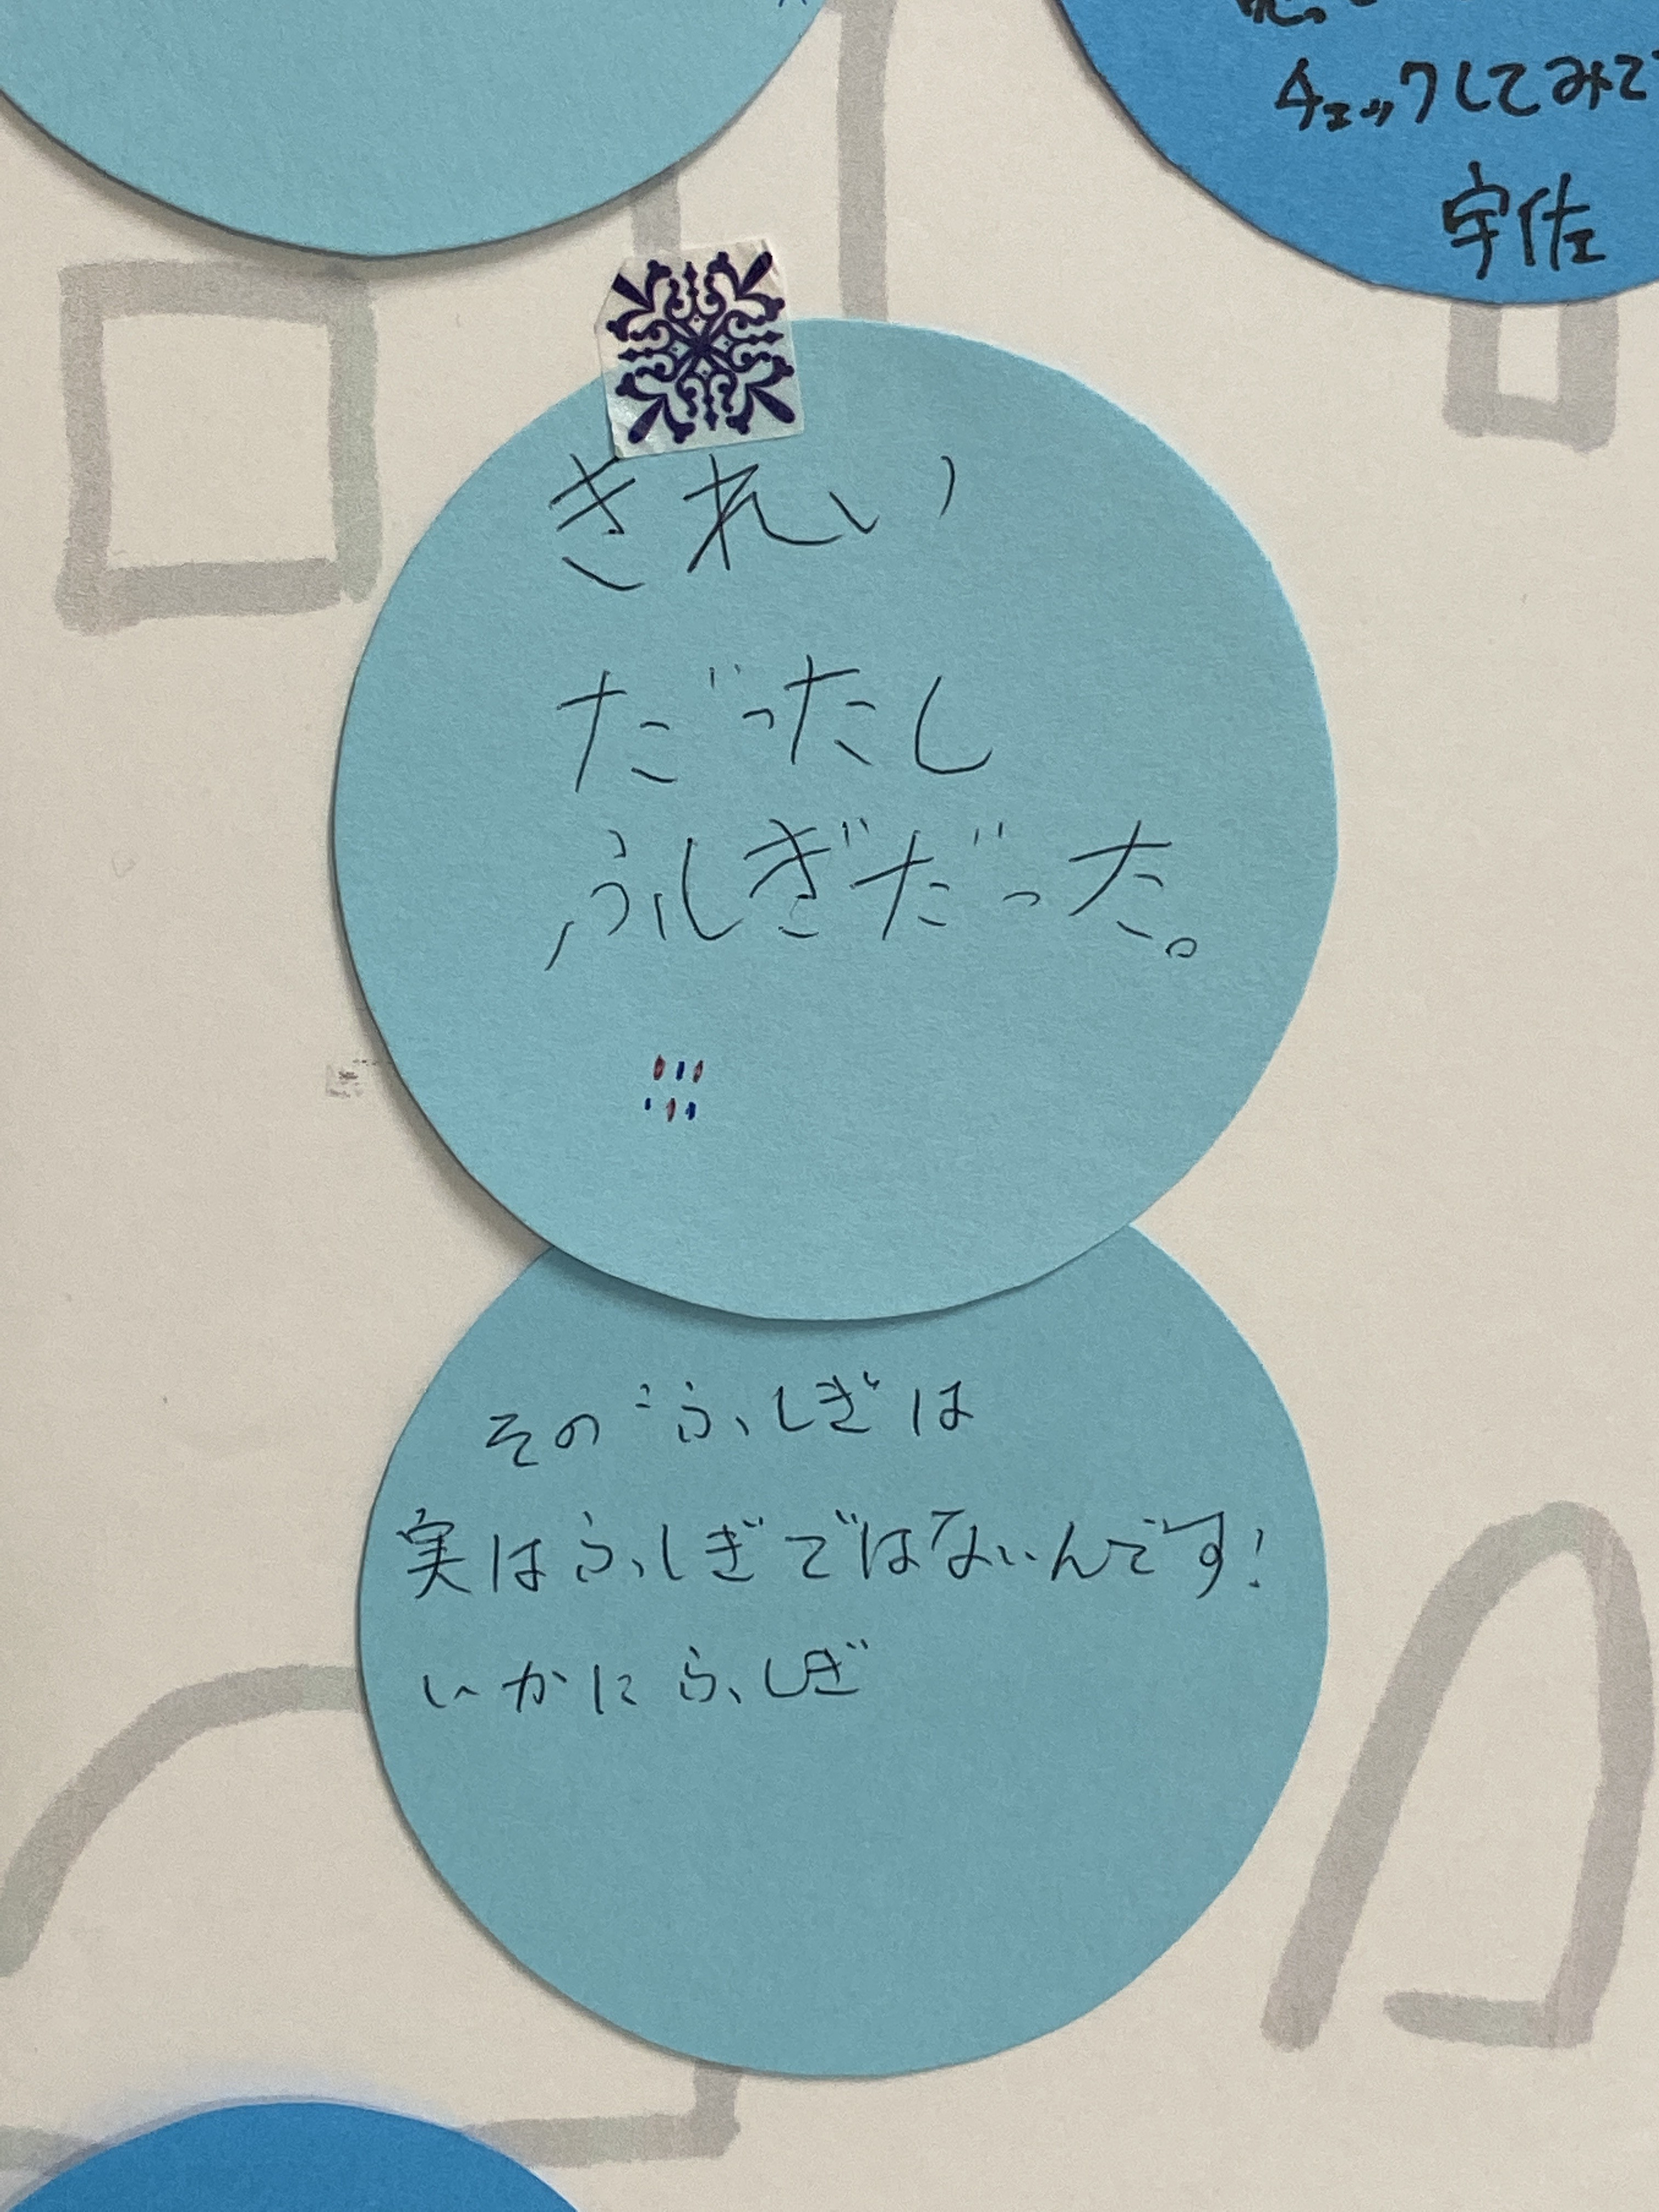 チェックしてみて
宇佐
きれい
だったし
ふしぎだった。
その"ふしぎ"は
実はふしぎではないんです!
いかにふしぎ